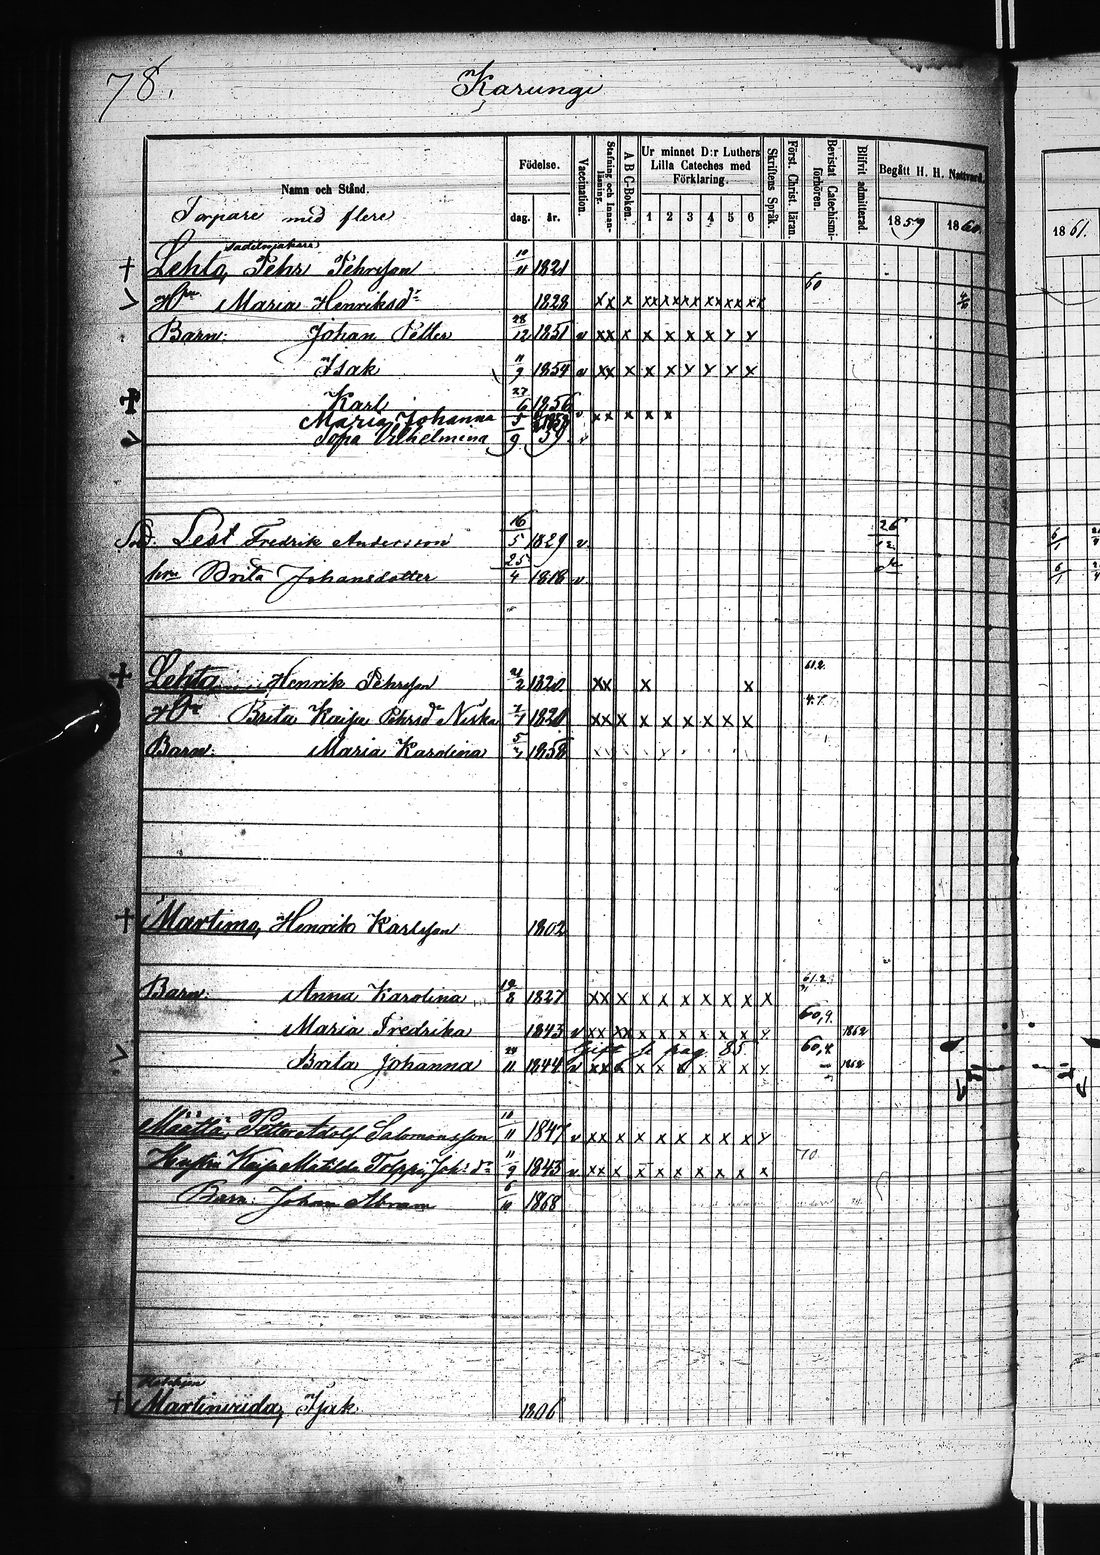 78.
Karungi
Namn och Stånd.
Torpare med flere
Födelse.
dag.
år.
Vaccination.
Stafning och Innan-läsning.
A B C-Boken.
Ur minnet D:r Luthers
Lilla Cateches med
Förklaring.
1 2 3 4 5 6
Skriftens Språk.
Först. Christ. läran.
Bevistat Catechismi-förhören.
Blifvit admitterad.
Begått H. H. Nattvard.
1859
1860
1861.
Sadelmakare
+ Lehto, Pehr Pehrsson 10/11 1821
Hu Maria Henriksdr 1828 xx x xx xx xx xx xx xx 60
Barn: Johan Petter 28/12 1851 v xx x x x x x y y
Isak 11/9 1854 v xx x x x y y y x
Karl 27/6 1856
Maria Johanna v xx x x x
Sofia Vilhelmina 5/9 59 v
Sold. Lest Fredrik Andersson 16/5 1829 v 26/12
hu Brita Johansdotter 25/4 1818 v
+ Lehto Henrik Pehrsson 21/2 1820 xx x x 61.2.
Hu Brita Kaisa Pehrsdr Niska 1820 xx x x x x x x x
Barn: Maria Karolina 1858
+ Martimo, Henrik Karlsson 1802
Barn: Anna Karolina 19/8 1827 xx x x x x x x x x 61.2.
Maria Fredrika 1843 v xx xx x x x x x x y 60,9. 1862
Gift se pag. 85
Brita Johanna 24/11 1844 v xx x x x x x x x y 60,4. 1862
Määttä, Petter Adolf Salomonsson 10/11 1847 v xx x x x x x x x y
Hustru Kaisa Matilda Tolppi Joh:dr 11/9 1845 v xx x x x x x x x x 70
Barn: Johan Abram 6/11 1868
+ Martinviida, Isak 1806